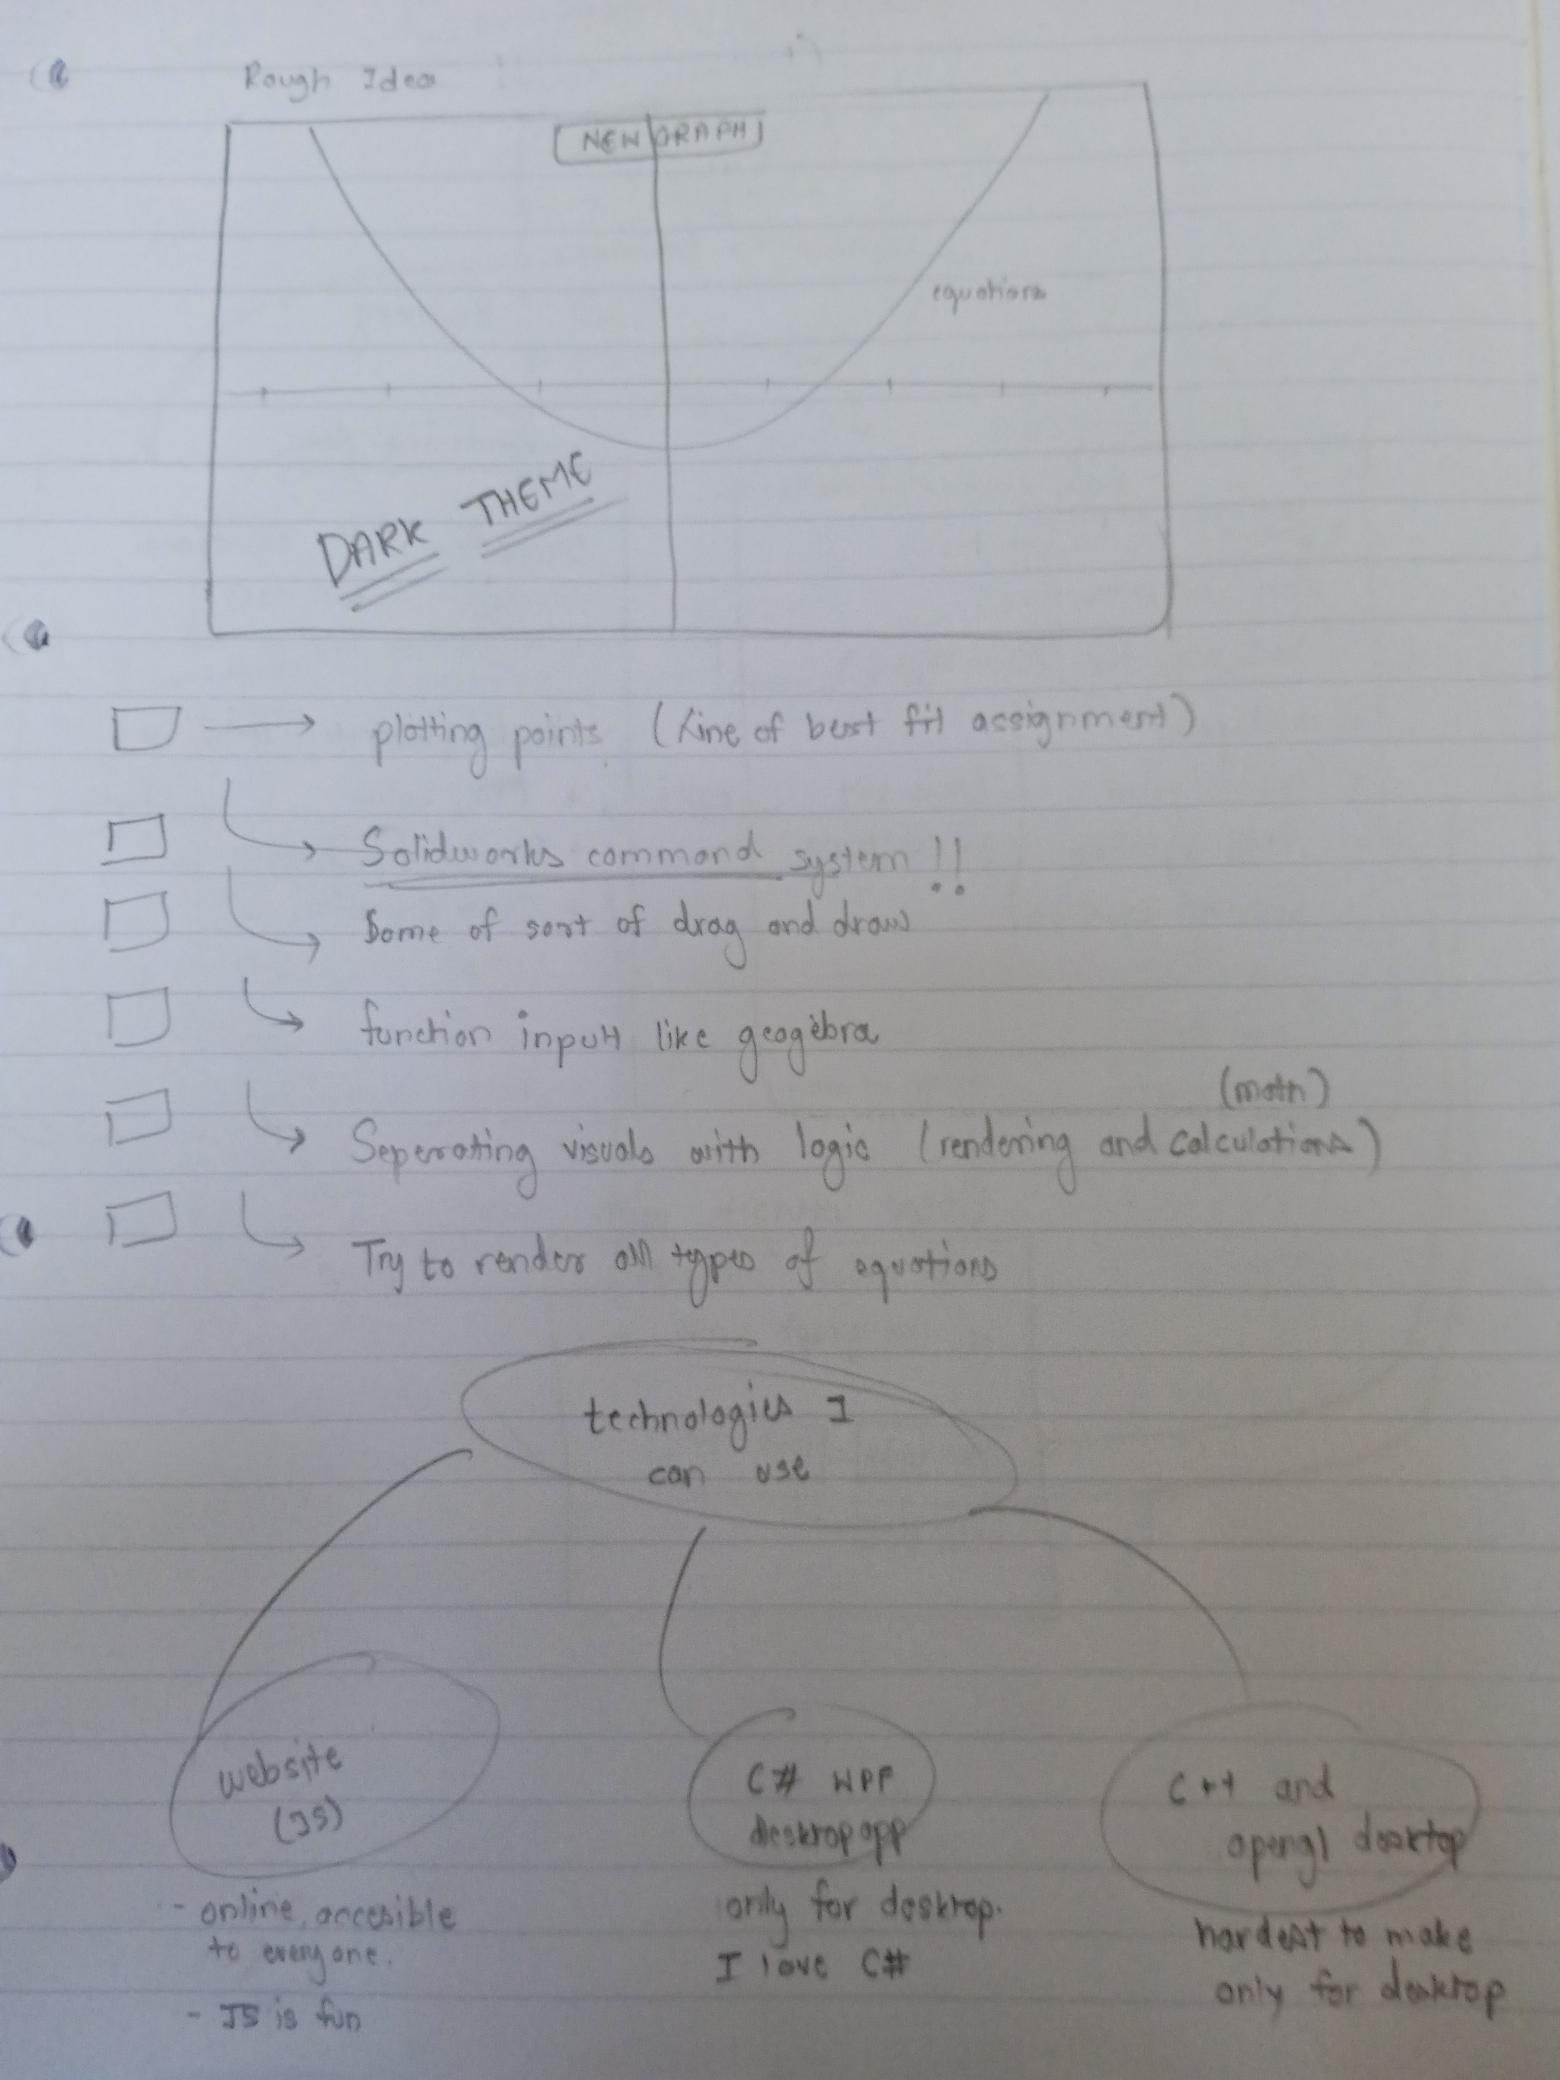 Rough Idea
NEW GRAPH
equations
DARK THEME
plotting points (Line of best fit assignment)
Solidworks command system !!
Some of sort of drag and draw
function input like geogebra
(math)
Seperating visuals with logic (rendering and calculations)
Try to render all types of equations
technologies I
can use
website
(JS)
- online, accesible
to everyone.
- JS is fun
C# WPF
desktop app
only for desktop.
I love C#
C++ and
opengl desktop
hardest to make
only for desktop